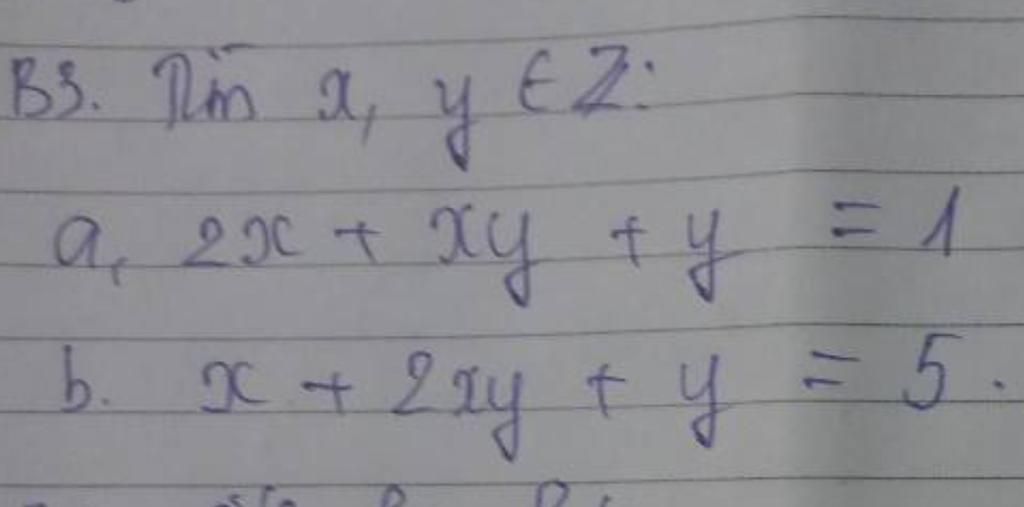 B3. Tìm x, y ∈ Z:
a, 2x + xy + y = 1
b. x + 2xy + y = 5.